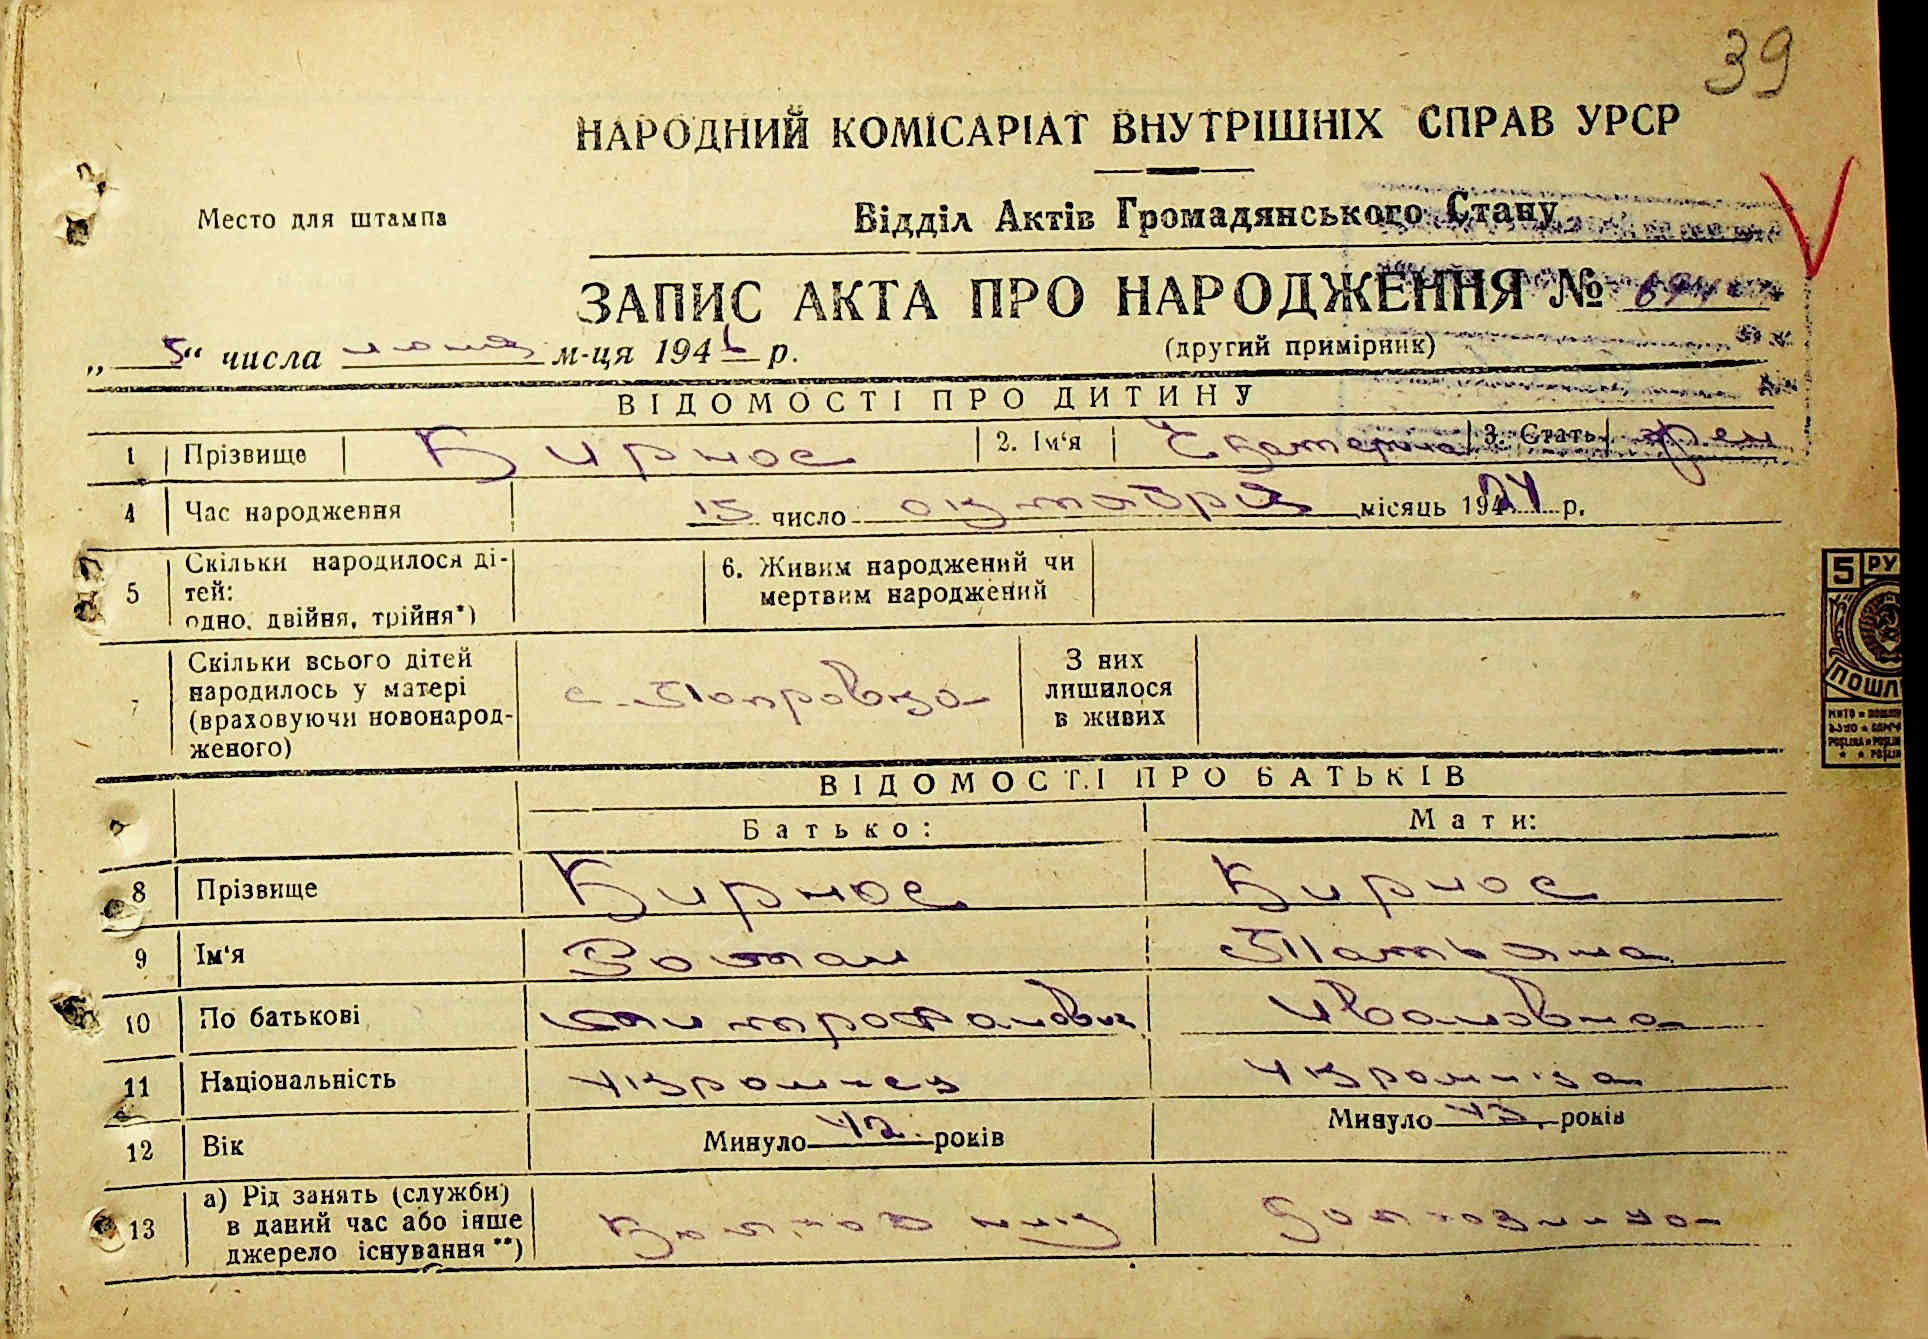 39
НАРОДНИЙ КОМІСАРІАТ ВНУТРІШНІХ СПРАВ УРСР
Место для штампа
Відділ Актів Громадянського Стану
ЗАПИС АКТА ПРО НАРОДЖЕННЯ №
„ 5 “ числа июня м-ця 194 р.
(другий примірник)
ВІДОМОСТІ ПРО ДИТИНУ
1 Прізвище Кирнос 2. Ім‘я Екатерина 3. Стать жен
4 Час народження 15 число октября місяць 1924 р.
5 Скільки народилося ді-
тей:
одно, двійня, трійня*)
6. Живим народжений чи
мертвим народжений
7 Скільки всього дітей
народилось у матері
(враховуючи новонарод-
женого)
с. Покровка
З них
лишилося
в живих
ВІДОМОСТІ ПРО БАТЬКІВ
Батько: Мати:
8 Прізвище Кирнос Кирнос
9 Ім‘я Роман Татьяна
10 По батькові Митрофанович Ивановна
11 Національність Украинец Украинка
12 Вік Минуло 42 років Минуло 43 років
13 а) Рід занять (служби)
в даний час або інше
джерело існування **)
Колхозник Колхозница
5 РУ
ПОШЛ